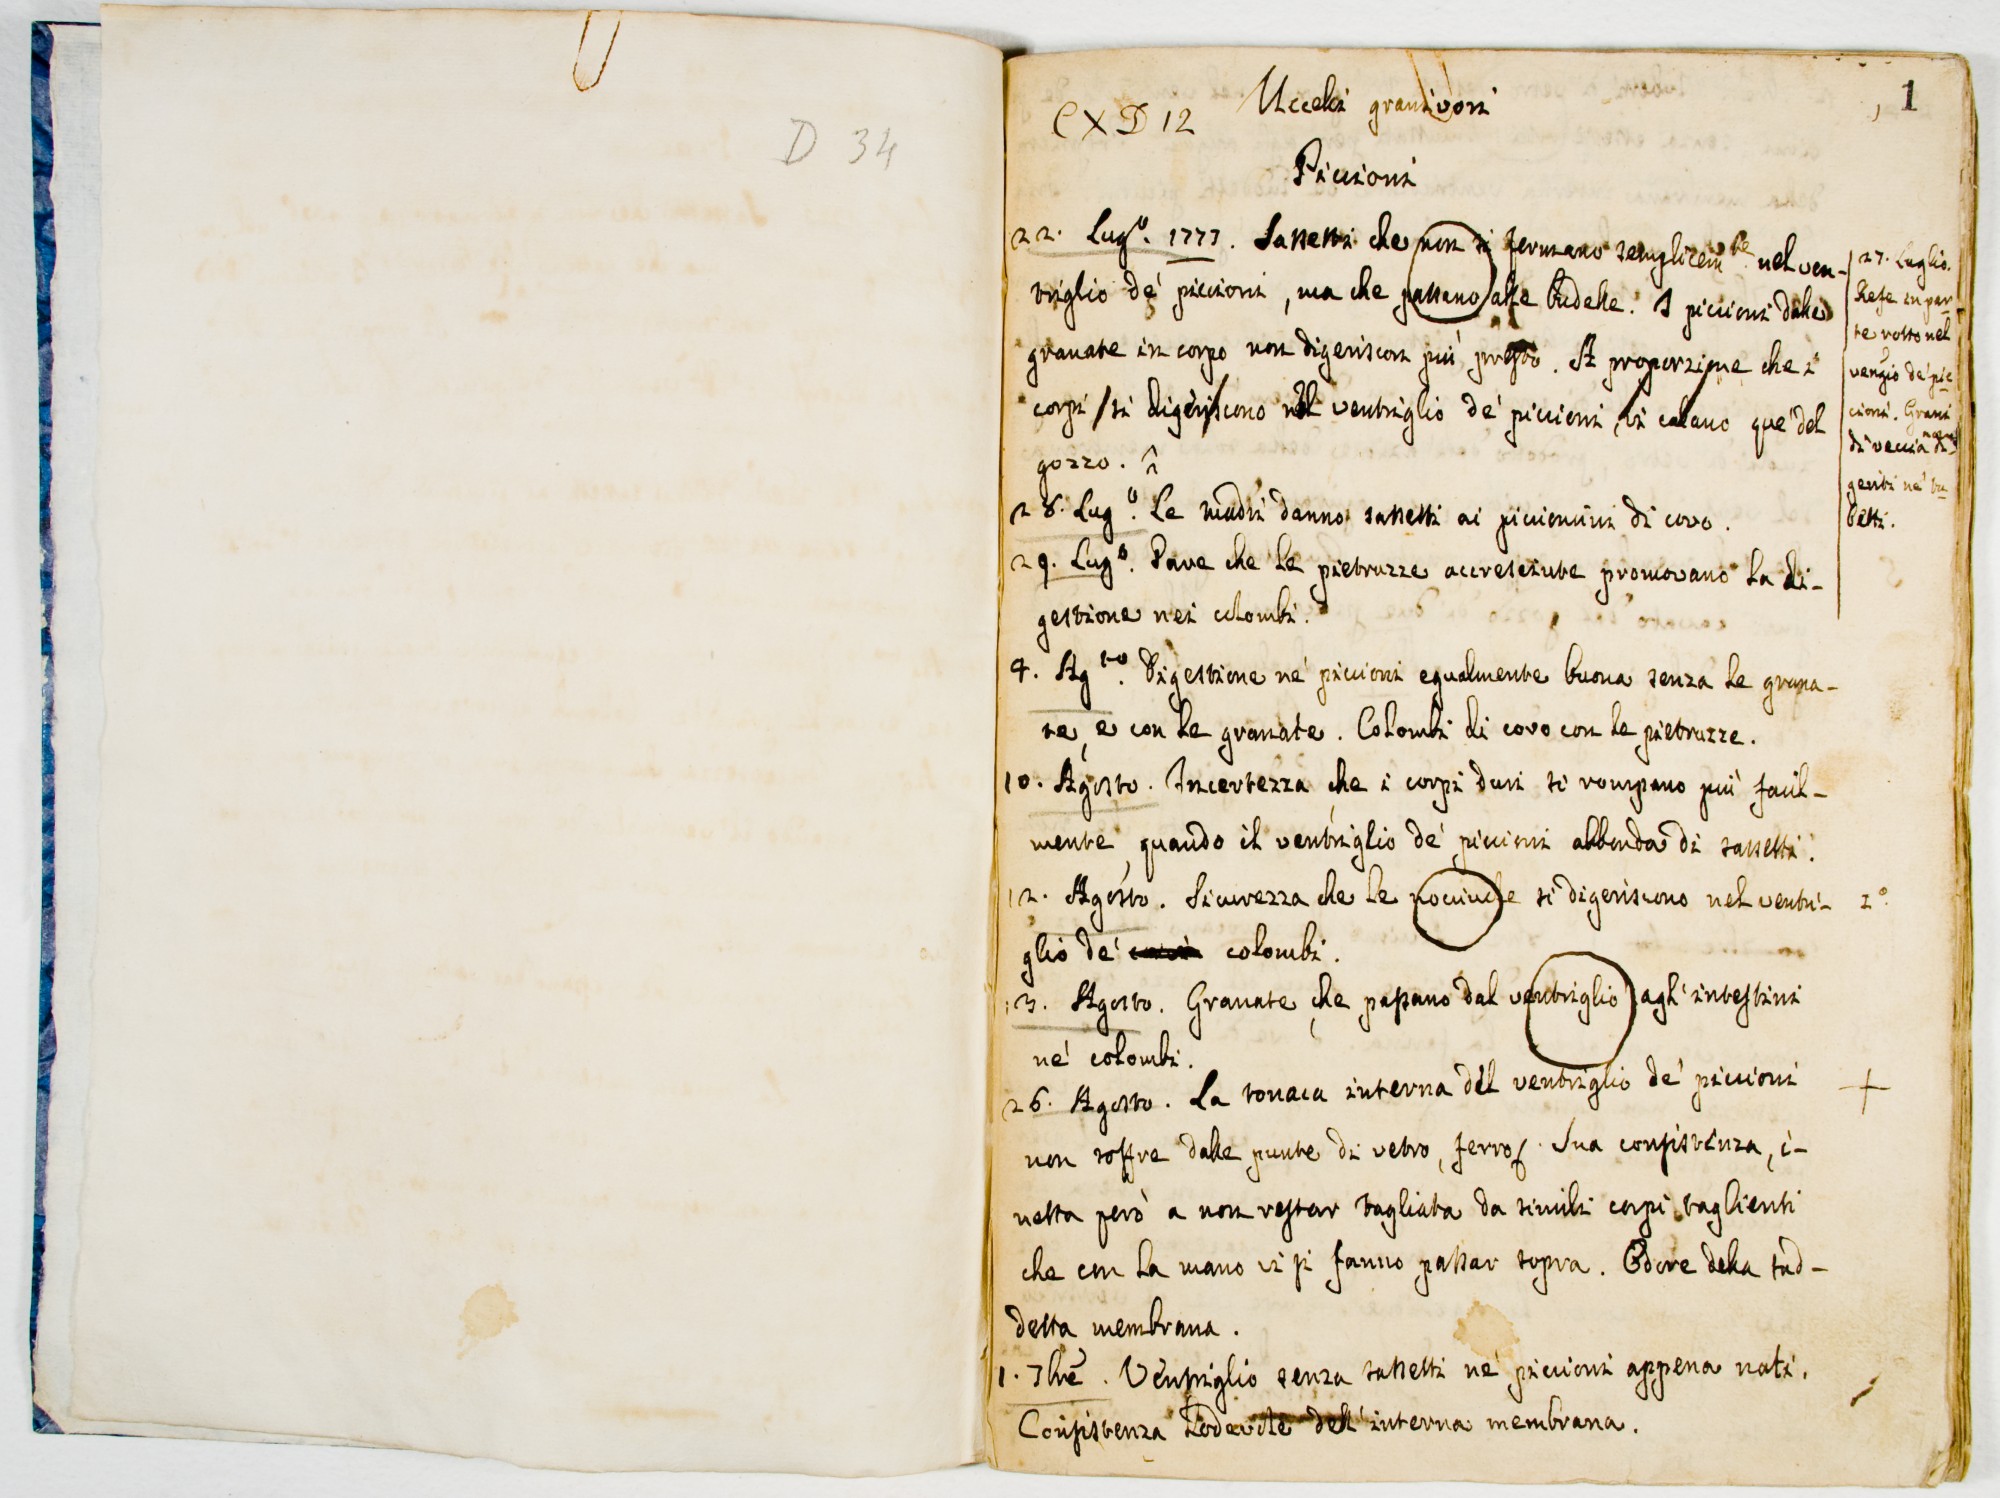 D 34
1
CXD12
Uccelli granivori
Piccioni
22. Lug.º 1777. Sassetti che non si fermano semplicem.te nel ven-
triglio de' piccioni, ma che passano alle budelle. I piccioni dalle
granate in corpo non digeriscon più presto. A proporzione che i
corpi si digeriscono nel ventriglio de' piccioni, vi calano que' del
gozzo.
26. Lug.º Le madri danno sassetti ai piccioncini di covo.
29. Lug.º Pare che le pietruzze accresciute promovano la di-
gestione nei colombi.
4. Ag.to Digestione ne' piccioni egualmente buona senza le grana-
te, e con le granate. Colombi di covo con le pietruzze.
10. Agosto. Incertezza che i corpi duri si rompano più facil-
mente, quando il ventriglio de' piccioni abbonda di sassetti.
12. Agosto. Sicurezza che le nocciuole si digeriscono nel ventri-
glio de' colombi.
13. Agosto. Granate che passano dal ventriglio agl'intestini
ne' colombi.
26. Agosto. La tonaca interna del ventriglio de' piccioni
non soffre dalle punte di vetro, ferro. Sua consistenza, i-
netta però a non restar tagliata da simili corpi taglienti
che con la mano vi si fanno passar sopra. Odore della sud-
detta membrana.
1. 7bre. Ventriglio senza sassetti ne' piccioni appena nati.
Consistenza lodevole dell'interna membrana.
27. Luglio.
Refe in par-
te rotto nel
de' pic-
cioni. Grani
di veccia di-
geriti ne' tu-
betti.